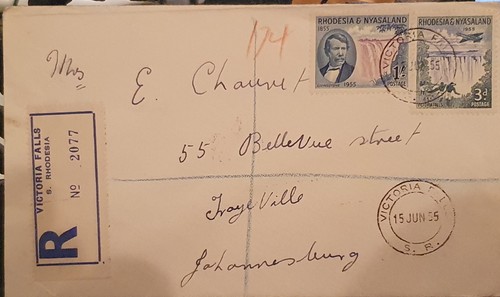 174
RHODESIA & NYASALAND
1855
1955
1/-
POSTAGE
RHODESIA & NYASALAND
1955
3d
POSTAGE
VICTORIA FALLS
JUN 55
Mrs E. Chauvet
55 BelleVue street
TroyeVille
Johannesburg
R
VICTORIA FALLS
S. RHODESIA
No 2077
VICTORIA FALLS
15 JUN 55
S. R.